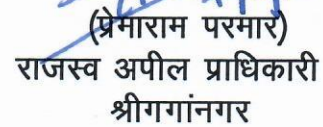 (प्रेमाराम परमार)
राजस्व अपील प्राधिकारी
श्रीगगांनगर